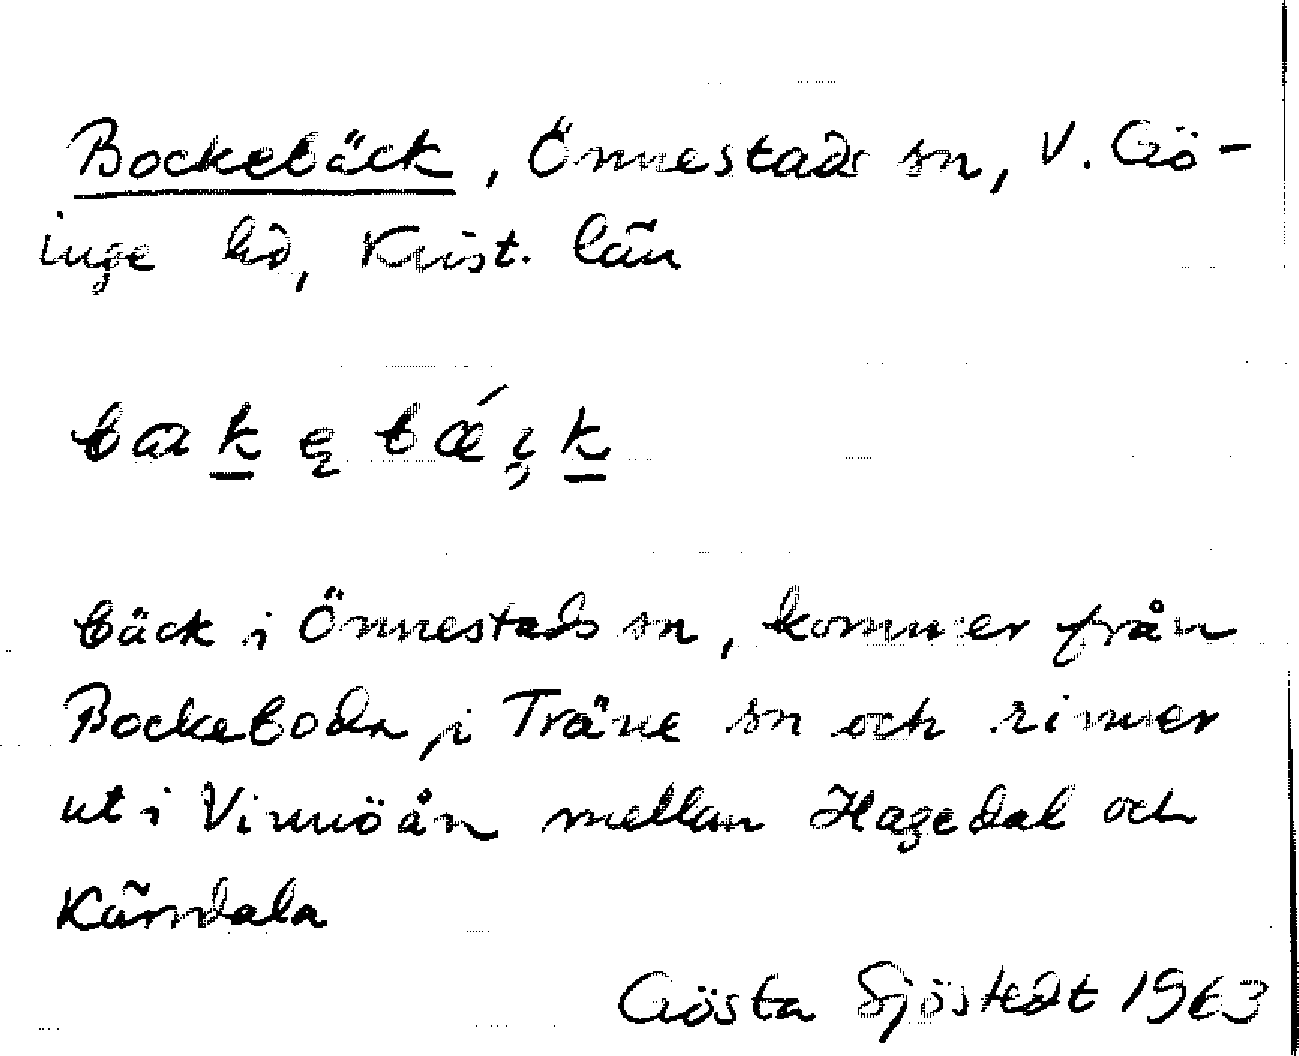 Bockebäck, Önnestads sn, V. Gö-
inge hd, Krist. län
bäck i Önnestads sn, kommer från
Bockeboda, i Träne sn och rinner
ut i Vinnöån mellan Hagedal och
Kärrdala
Gösta Sjöstedt 1963